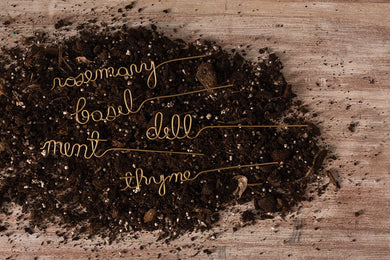 rosemary
basil
dell
ment
thyme